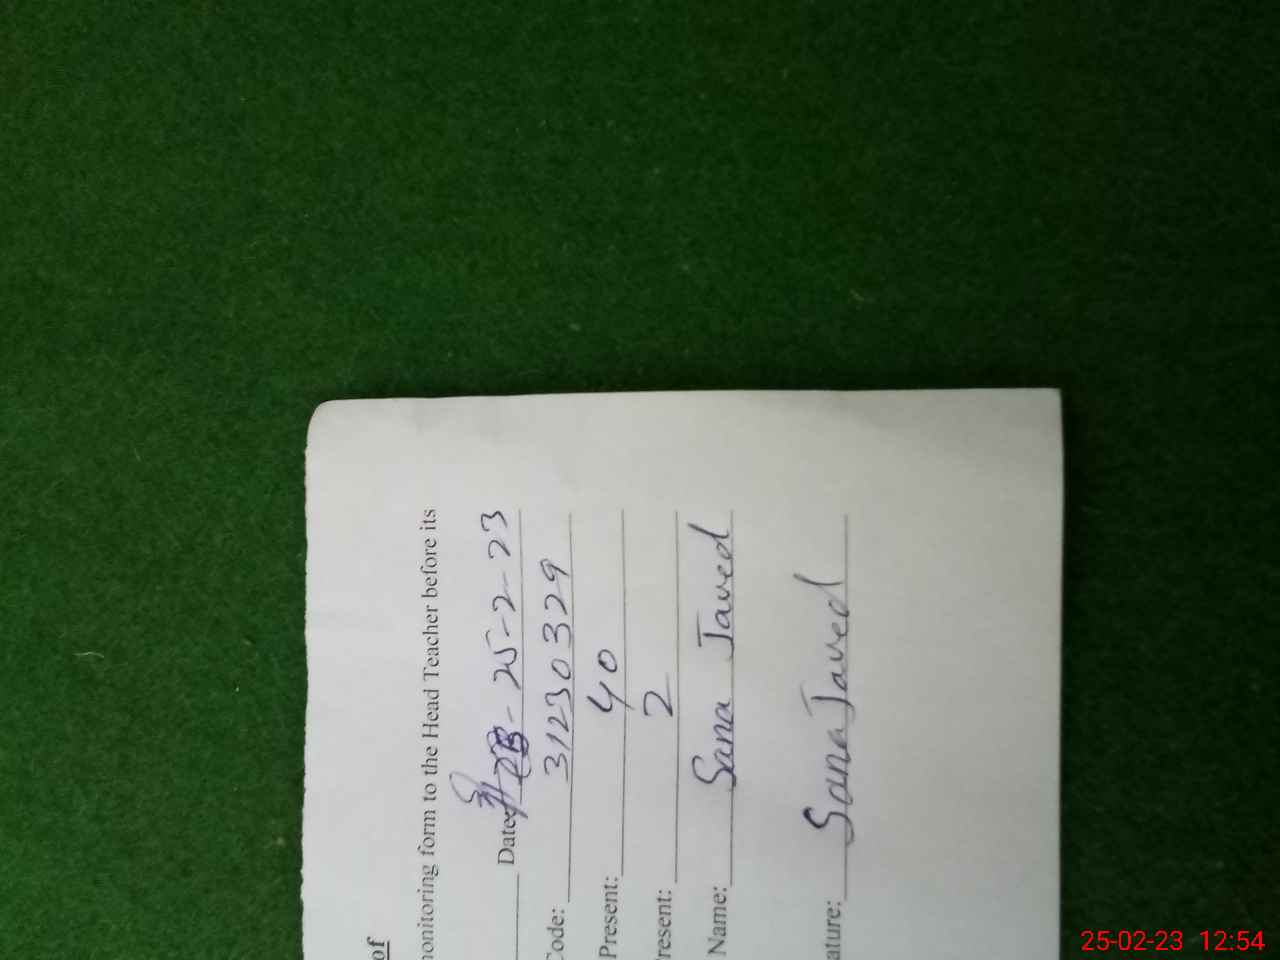 of
onitoring form to the Head Teacher before its
Date: 25-2-23
Code: 31230329
Present: 40
resent: 2
Name: Sana Javed
ature: Sana Javed
25-02-23 12:54